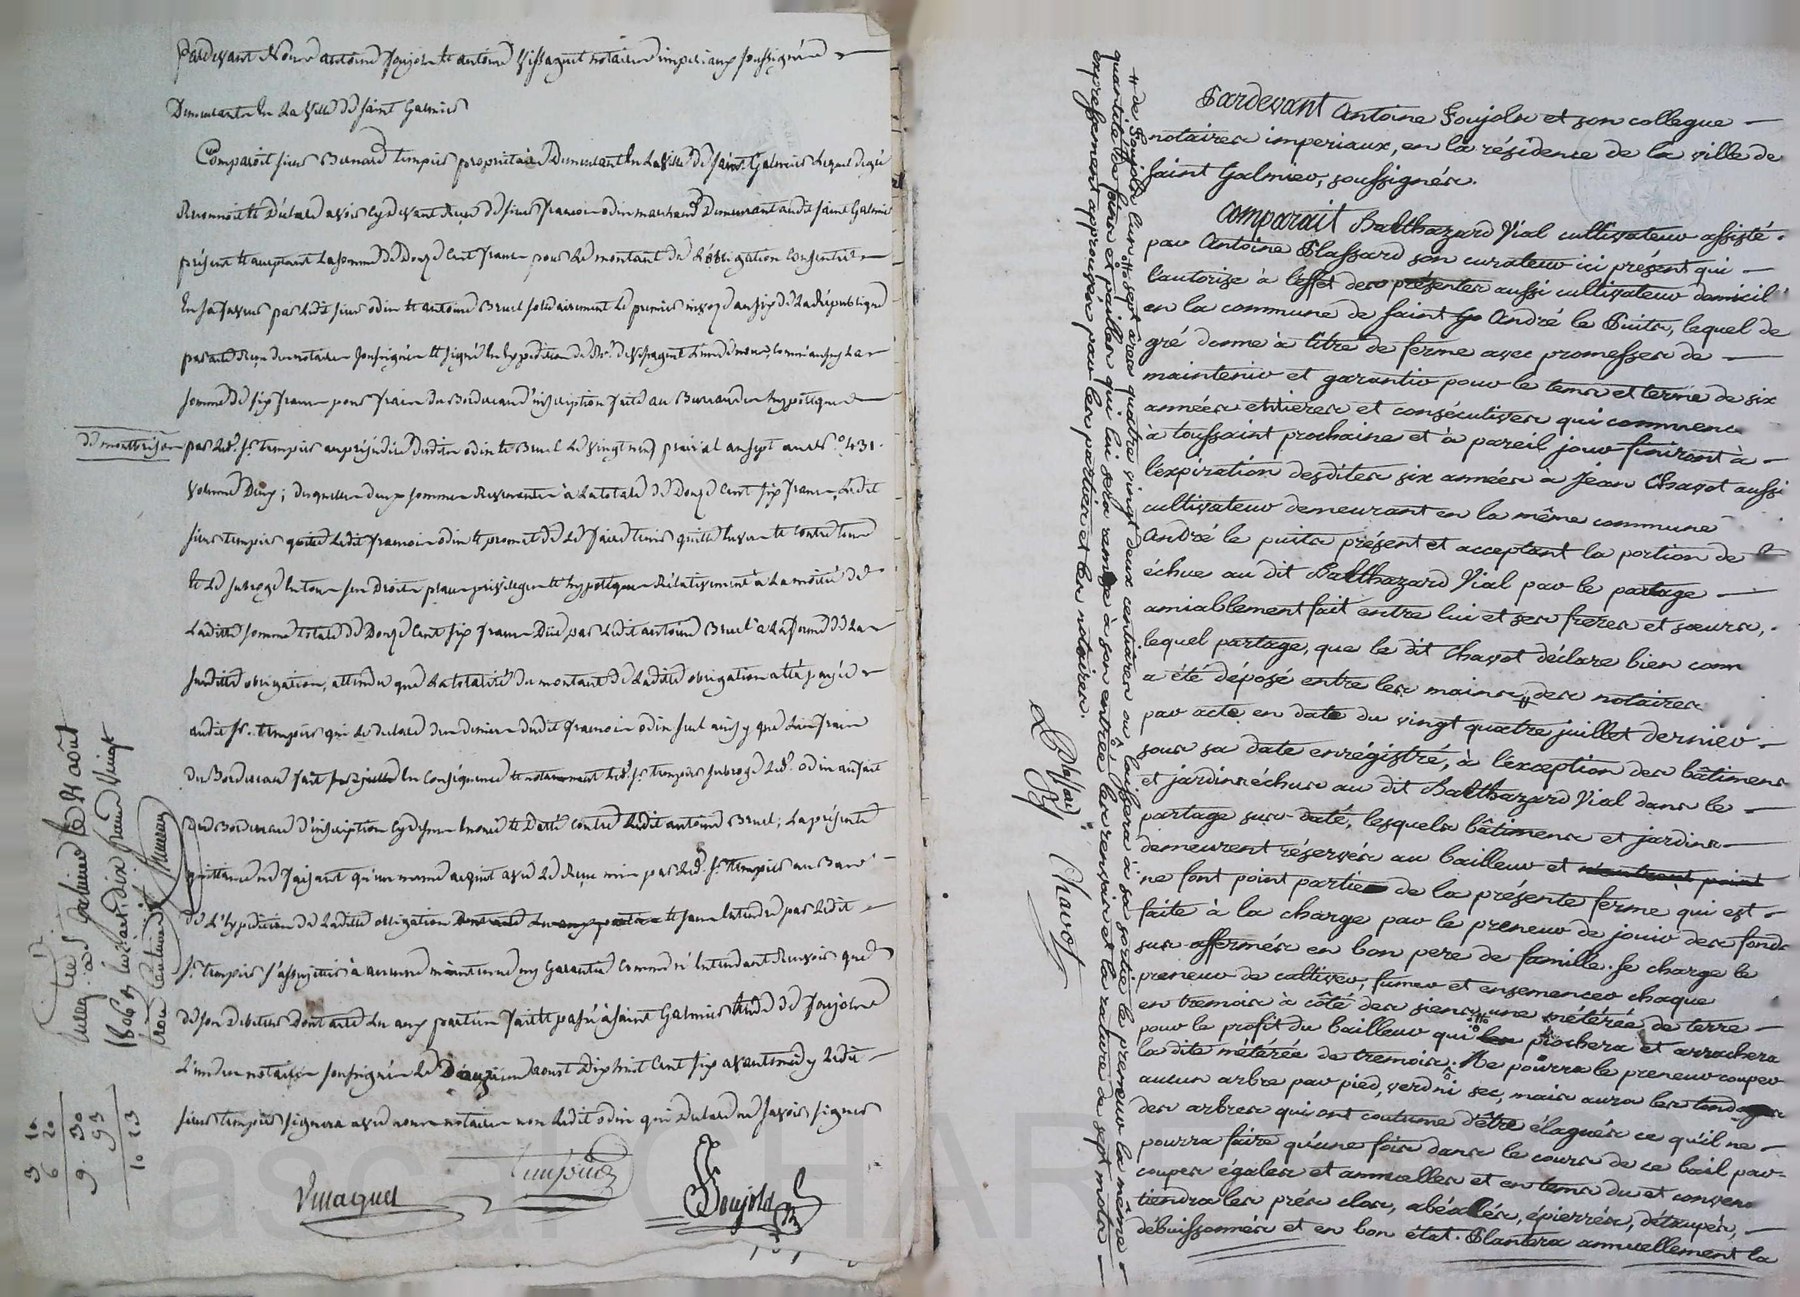 Pardevant Nous antoine Soujols et antoine Vissaguet notaires imperiaux soussignés
Demeurants En La Ville de Saint Galmier
Comparoit sieur Benard tempier propriétaire Demeurant En La Ville de Saint Galmier Lequel de gré
Reconnoit et Déclare avoir Cy devant Reçu de sieur francois odin marchand Demeurant audit Saint Galmier
présent et acceptant La somme de Douze Cent francs pour Le montant de L'obligation Consentie
En sa faveur par Ledit sieur odin et antoine Bruel solidairement Le premier nivoze an six de La République
par acte Reçu des notaires soussignés et signé En Expédition de Me. de Vissaguet L'un de nous, Comme aussi La
somme de six francs pour frais du Bordereau d'inscription faite au Bureau des hypotèques
de montbrison par Led. sr. tempier au préjudice Desdits odin et Bruel Le vingt neuf prairial an sept au N.° 431.
volume Deux; desquelles deux sommes Revenantes à La totale de Douze Cent six francs, Ledit
sieur tempier quitte Ledit francois odin et promet de Le faire tenir quitte Envers et Contre tous
et Le subroge En tous ses Droits place privilèges et hypotèques Relativement à La moitié de
Ladite somme totale de Douze Cent six francs Düe par Ledit antoine Bruel à La forme de La
susdite obligation, attendu que La totalité du montant de Ladite obligation a été payée
audit sr. tempier qui Le déclare des deniers dudit francois odin seul ainsy que Les frais
du Bordereau En Conséquence Led. sr. tempier subroge Led. odin au fait
dud Bordereau d'inscription Cy dessus Enoncé et Datté Contre Ledit antoine Bruel; La présente
quittance ne faisant qu'un même acquit avec Le Reçu mis par Led. sr. tempier au Bas
de L'Expédition de Ladite obligation et sans Entendre par Ledit
sr. tempier s'assujettir à aucune maintenue ny Garantie Comme n'Entendant Recevoir que
de son débiteur Dont acte Lu aux parties fait et passé à Saint Galmier Etude de Soujols
L'un des notaires soussignés Le Douze aoust Dix huit Cent six avant midy Ledit
sieur tempier signera avec nous notaires non Ledit odin qui déclare ne savoir signer
Vissaguet
Soujols
3 10
6 20
9. 30
93
10 23
Pardevant Antoine Soujols et son collegue
notaires imperiaux, en la résidence de la ville de
saint Galmier, soussignés.
Comparait Balthazard Vial cultivateur assisté
par Antoine Plassard son curateur ici présent qui
l'autorise à l'effet des présentes aussi cultivateur domicil
en la commune de saint André le Puits, lequel de
gré donne à titre de ferme avec promesses de
maintenir et garantir pour le tems et terme de six
années entieres et consécutives qui commenc
à toussaint prochaine et à pareil jour finiront à
l'expiration desdites six années a Jean Chavot aussi
cultivateur demeurant en la même commune
André le puits présent et acceptant la portion de
échue au dit Balthazard Vial par le partage
amiablement fait entre lui et ses freres et sœurs,
lequel partage, que le dit Chavot déclare bien conn
a été déposé entre les mains # des notaires
par acte en date du vingt quatre juillet dernier
sous sa date enrégistré, à l'exception des bâtimens
et jardins échus au dit Balthazard Vial dans le
partage sus-daté, lesquels bâtimens et jardins
demeurent réservés au bailleur et n'entrent point
ne font point partie de la présente ferme qui est
faite à la charge par le preneur de jouir des fonds
sus-affermés en bon pere de famille. Se charge le
preneur de cultiver, fumer et ensemencer chaque
en tremois à côté des siens, une métérée de terre
pour le profit du bailleur qui piochera et arrachera
la dite métérée de tremois. Ne pourra le preneur couper
aucun arbre par pied, verd ni sec, mais aura les tondages
des arbres qui ont coutume d'être élagués ce qu'il ne
pourra faire qu'une fois dans le cours de ce bail par
coupes égales et annuelles et en tems du et convena
tiendra les prés clos, abéalés, épierrés, détaupés,
débuissonnés et en bon état. Plantera annuellement la
# de Soujols l'un
quantité de foins et pailles qui lui sera remise à son entrée les renvois et la rature de sept mots
expressément approuvés par les parties et les notaires.
Plassard
Chavot